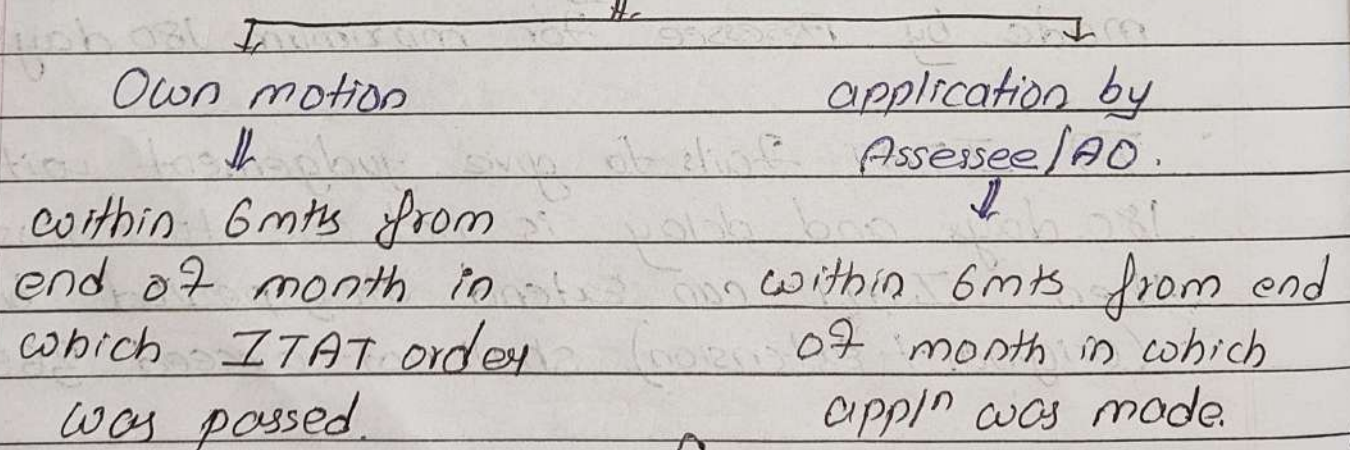 Own motion
within 6mts from
end of month in
which ITAT order
was passed.
application by
Assessee/AO.
within 6mts from end
of month in which
appln was made.